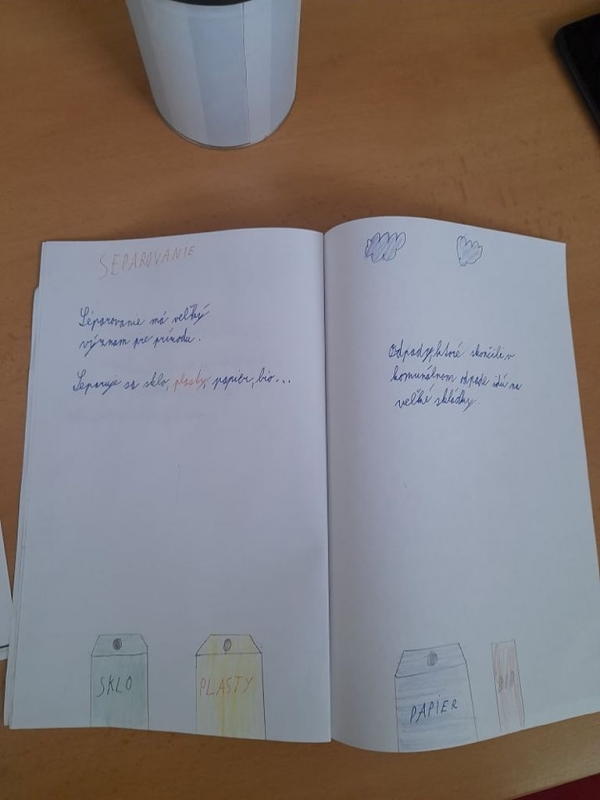 SEPAROVANIE
Separovanie má veľký
význam pre prírodu.
Separuje sa sklo, plasty, papier, bio...
SKLO
PLASTY
Odpady, ktoré skončili v
komunálnom odpade idú na
veľké skládky.
PAPIER
BIO